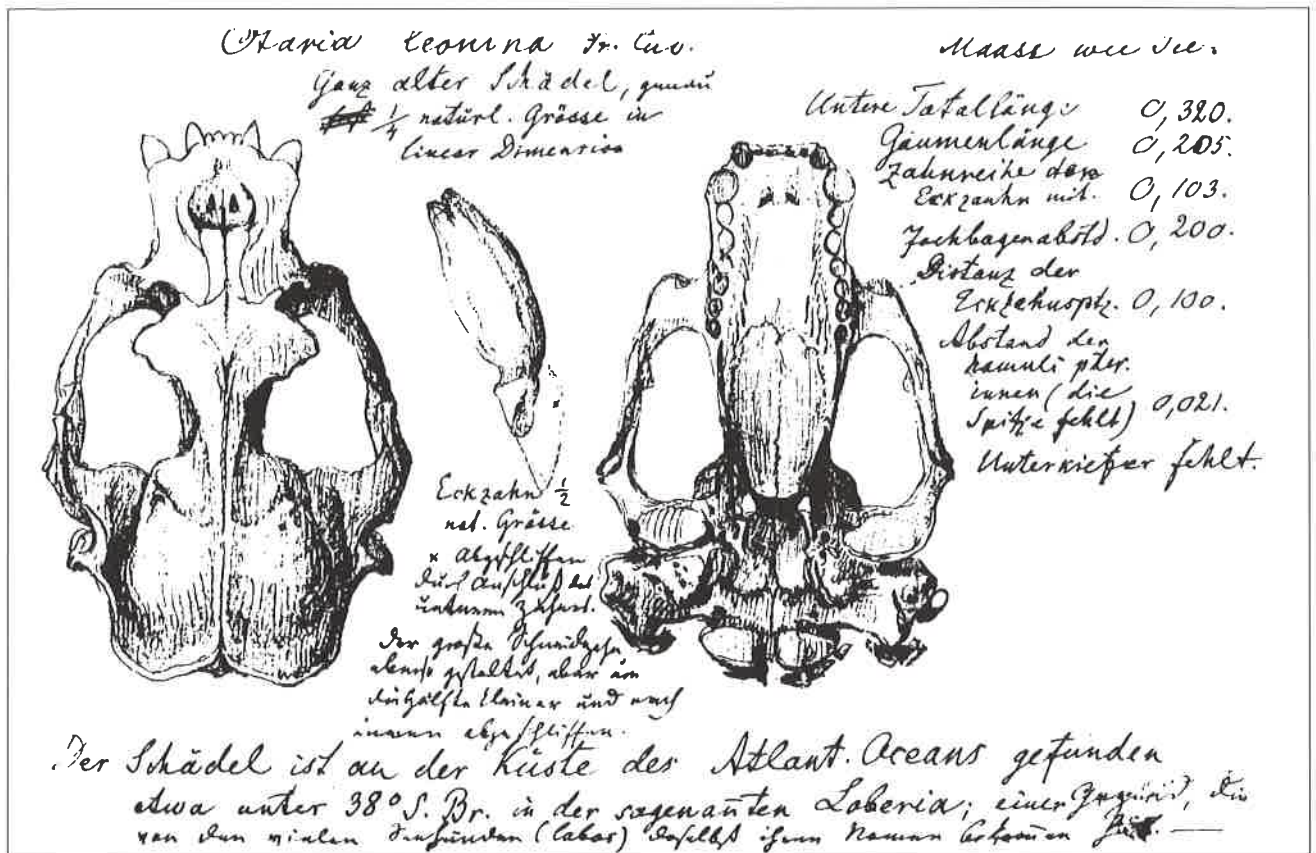 Otaria leonina Fr. Cuv.
Ganz alter Schädel, genau
1/4 natürl. Grösse in
linear Dimension
Maase wie
Untere Totallänge 0,320.
Gaumenlänge 0,205.
Zahnreihe
Eckzauhn mit. 0,103.
Jochbagenabstd. 0,200.
Distanz der
Eckzahnsptz. 0,100.
Abstand der
hamuli pter.
innen (die
Spitze fehlt) 0,021.
Unterkiefer fehlt.
Eckzahn 1/2
nat. Grösse
× Abgeschliffen
durch Anschluß des
unteren Zahnes.
Der große Schneidzahn
ebenso gestaltet, aber um
die Hälfte kleiner und nach
innen abgeschliffen.
Der Schädel ist an der Küste des Atlant. Oceans gefunden
etwa unter 38° S. Br. in der sogenañten Loberia; einer Gegend, die
von den vielen Seehunden (lobos) daselbst ihren Namen bekom̃en hat. —